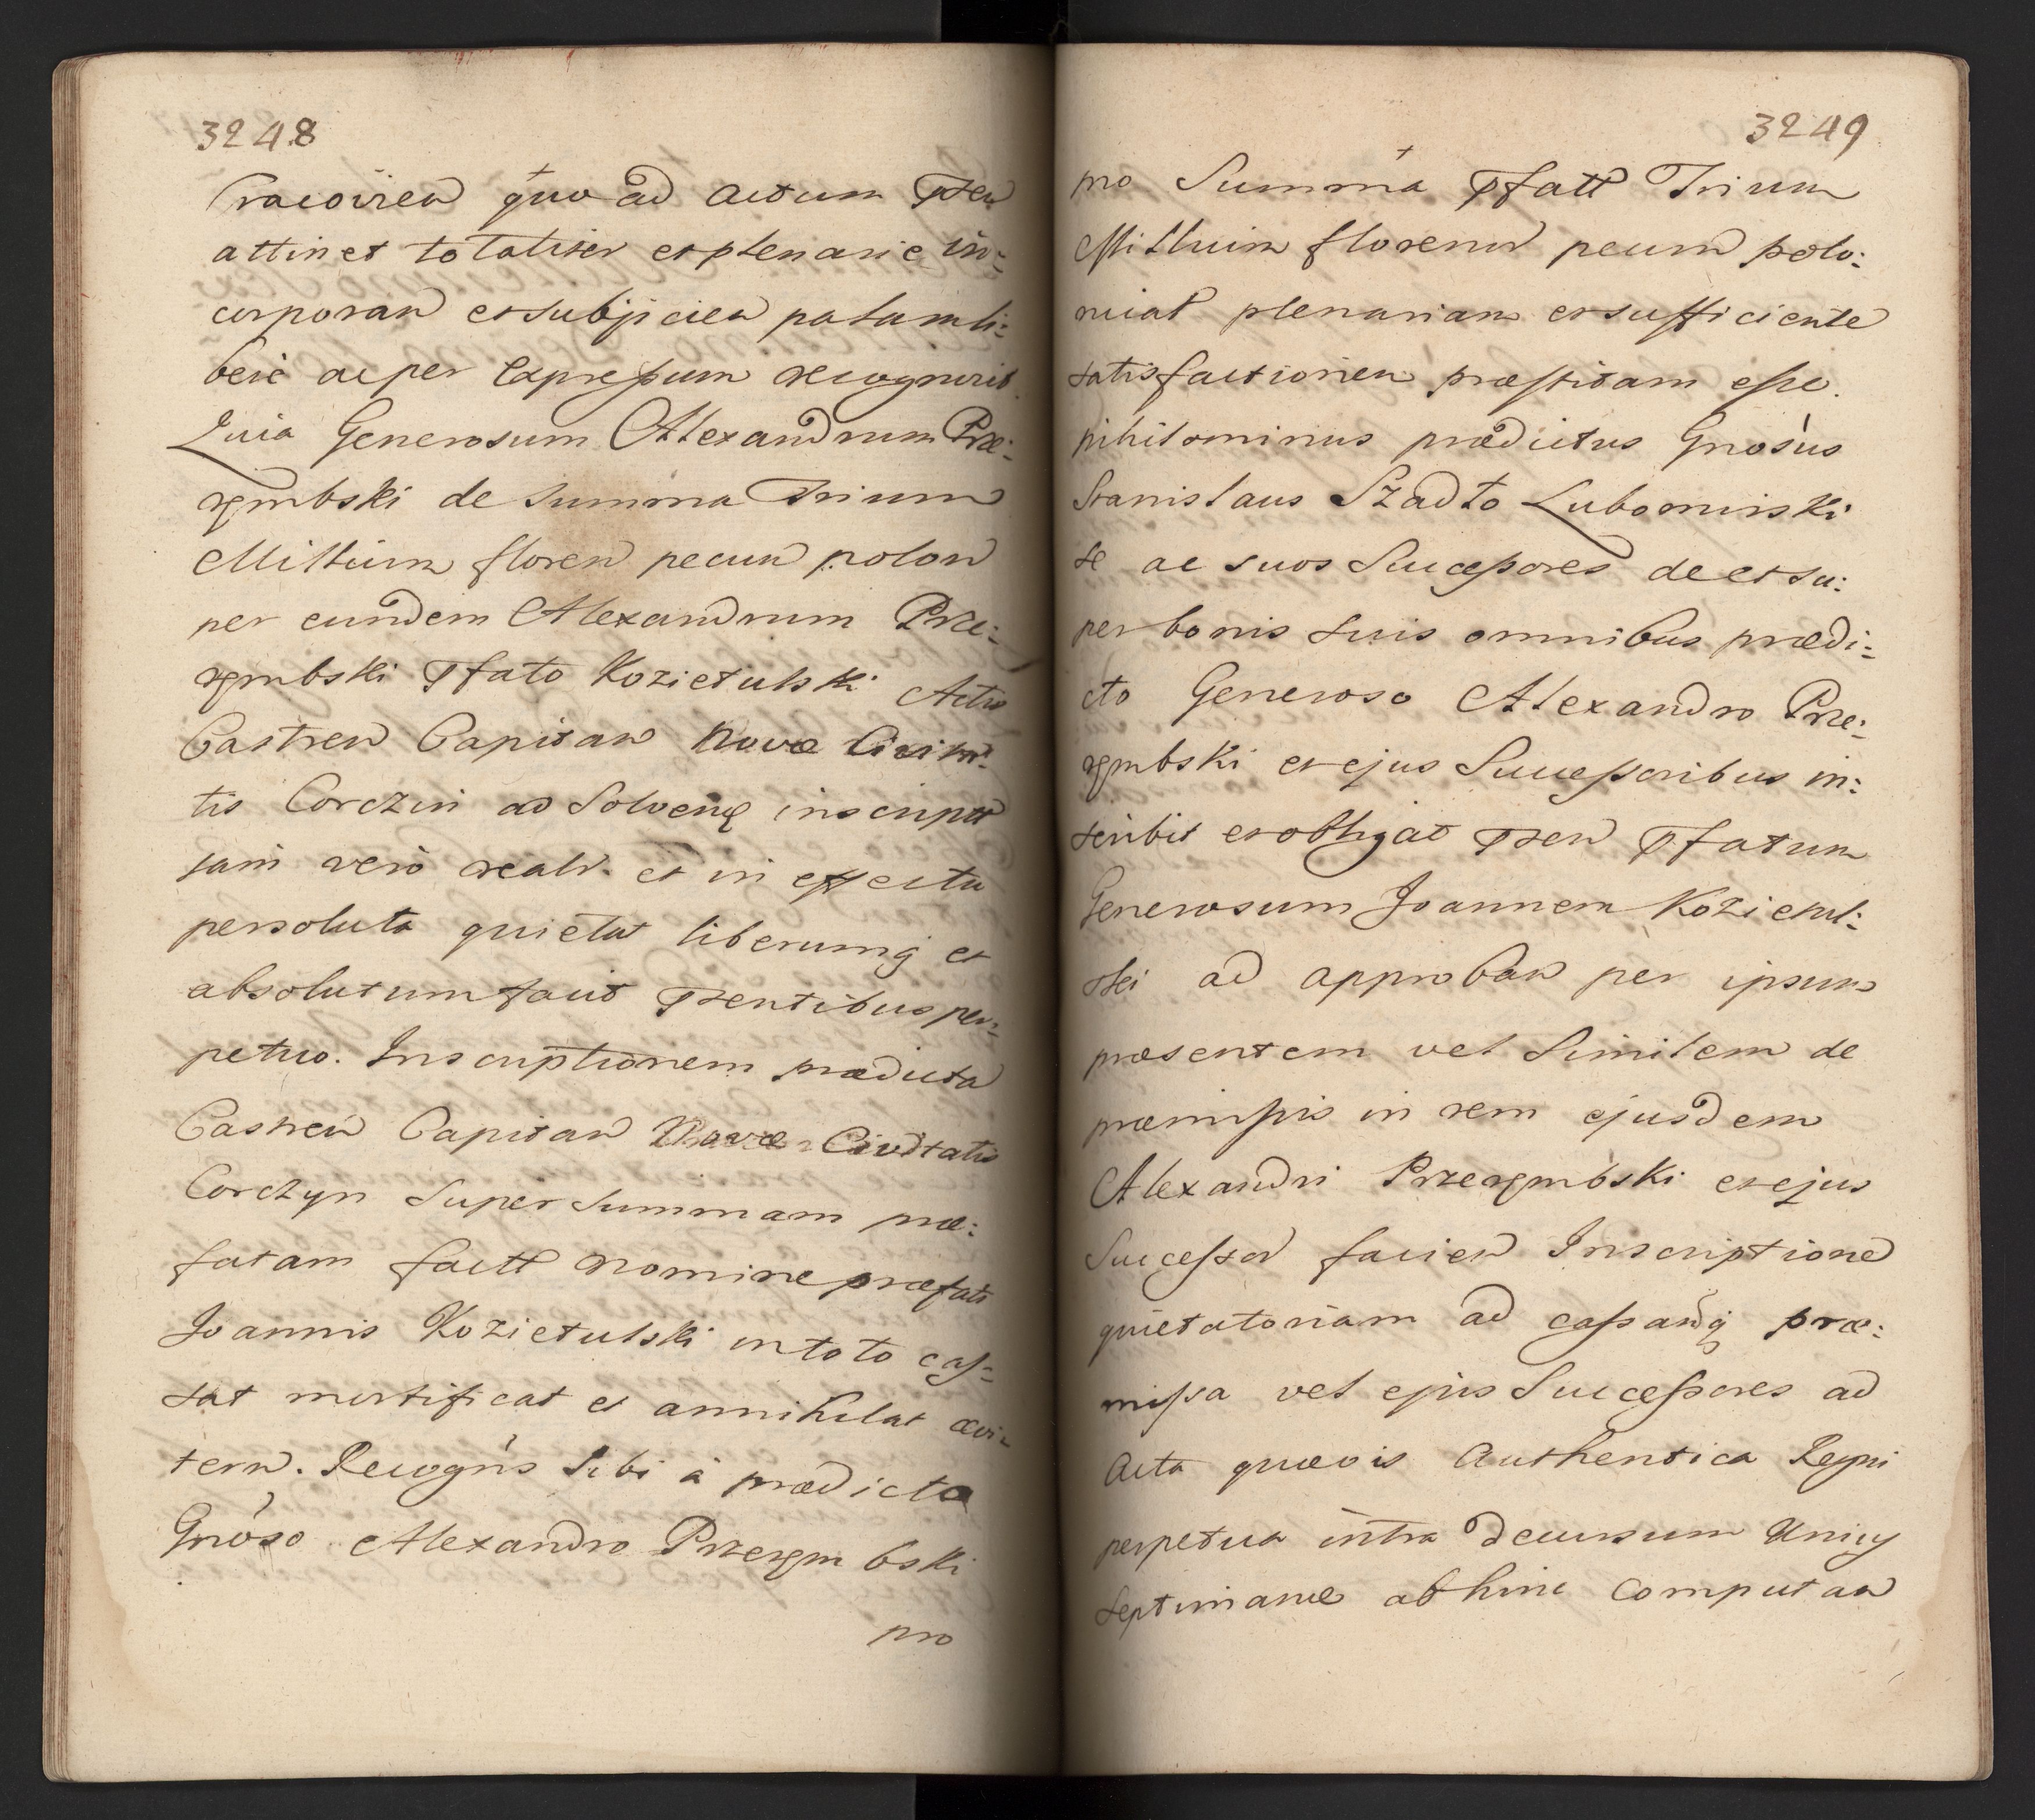 3248
Cracovien quo ad actum Psen
attinet totaliter et plenarie in:
corporan et subjicien palam li:
bere ac per expressum recognovit.
Quia Generosum Alexandrum Prze:
rembski de summa Trium
Millium floren pecun polon
per eundem Alexandrum Prze:
rembski Pfato Kozietulski Actis
Castren Capitan Novæ Civita:
tis Corczin ad Solvenq inscriptt
jam vero realr. et in effectu
persoluta quietat liberumq et
absolutum facit Psentibus per:
petuo. Inscriptionem prædicta
Castren Capitan Novæ Civitatis
Corczyn Super Summam præ:
fatam factt nomine præfati
Joannis Kozietulski in toto cas:
sat mortificat et annihilat ævi:
tern. Recogns Sibi à prædicto
Gnoso Alexandro Przerembski
pro
3249
pro Summa Pfatt Trium
Millium floren pecun polo:
nial plenariam et sufficiente
satisfactionem præstitam esse.
nihilominus prædictus Gnosus
Stanislaus Szadło Lubomirski
se ac suos Successores de et su:
per bonis suis omnibus prædi:
cto Generoso Alexandro Prze:
rembski et ejus Successoribus in:
scribit et obligat Psen Pfatum
Generosum Joannem Kozietul:
ski ad approban per ipsum
præsentem vel Similem de
præmissis in rem ejusdem
Alexandri Przerembski et ejus
Successor facien Inscriptione
quietatoriam ad cassandq præ:
missa vel ejus Successores ad
Acta quævis Authentica Regni
perpetua intra decursum Unius
septimanæ abhinc computan